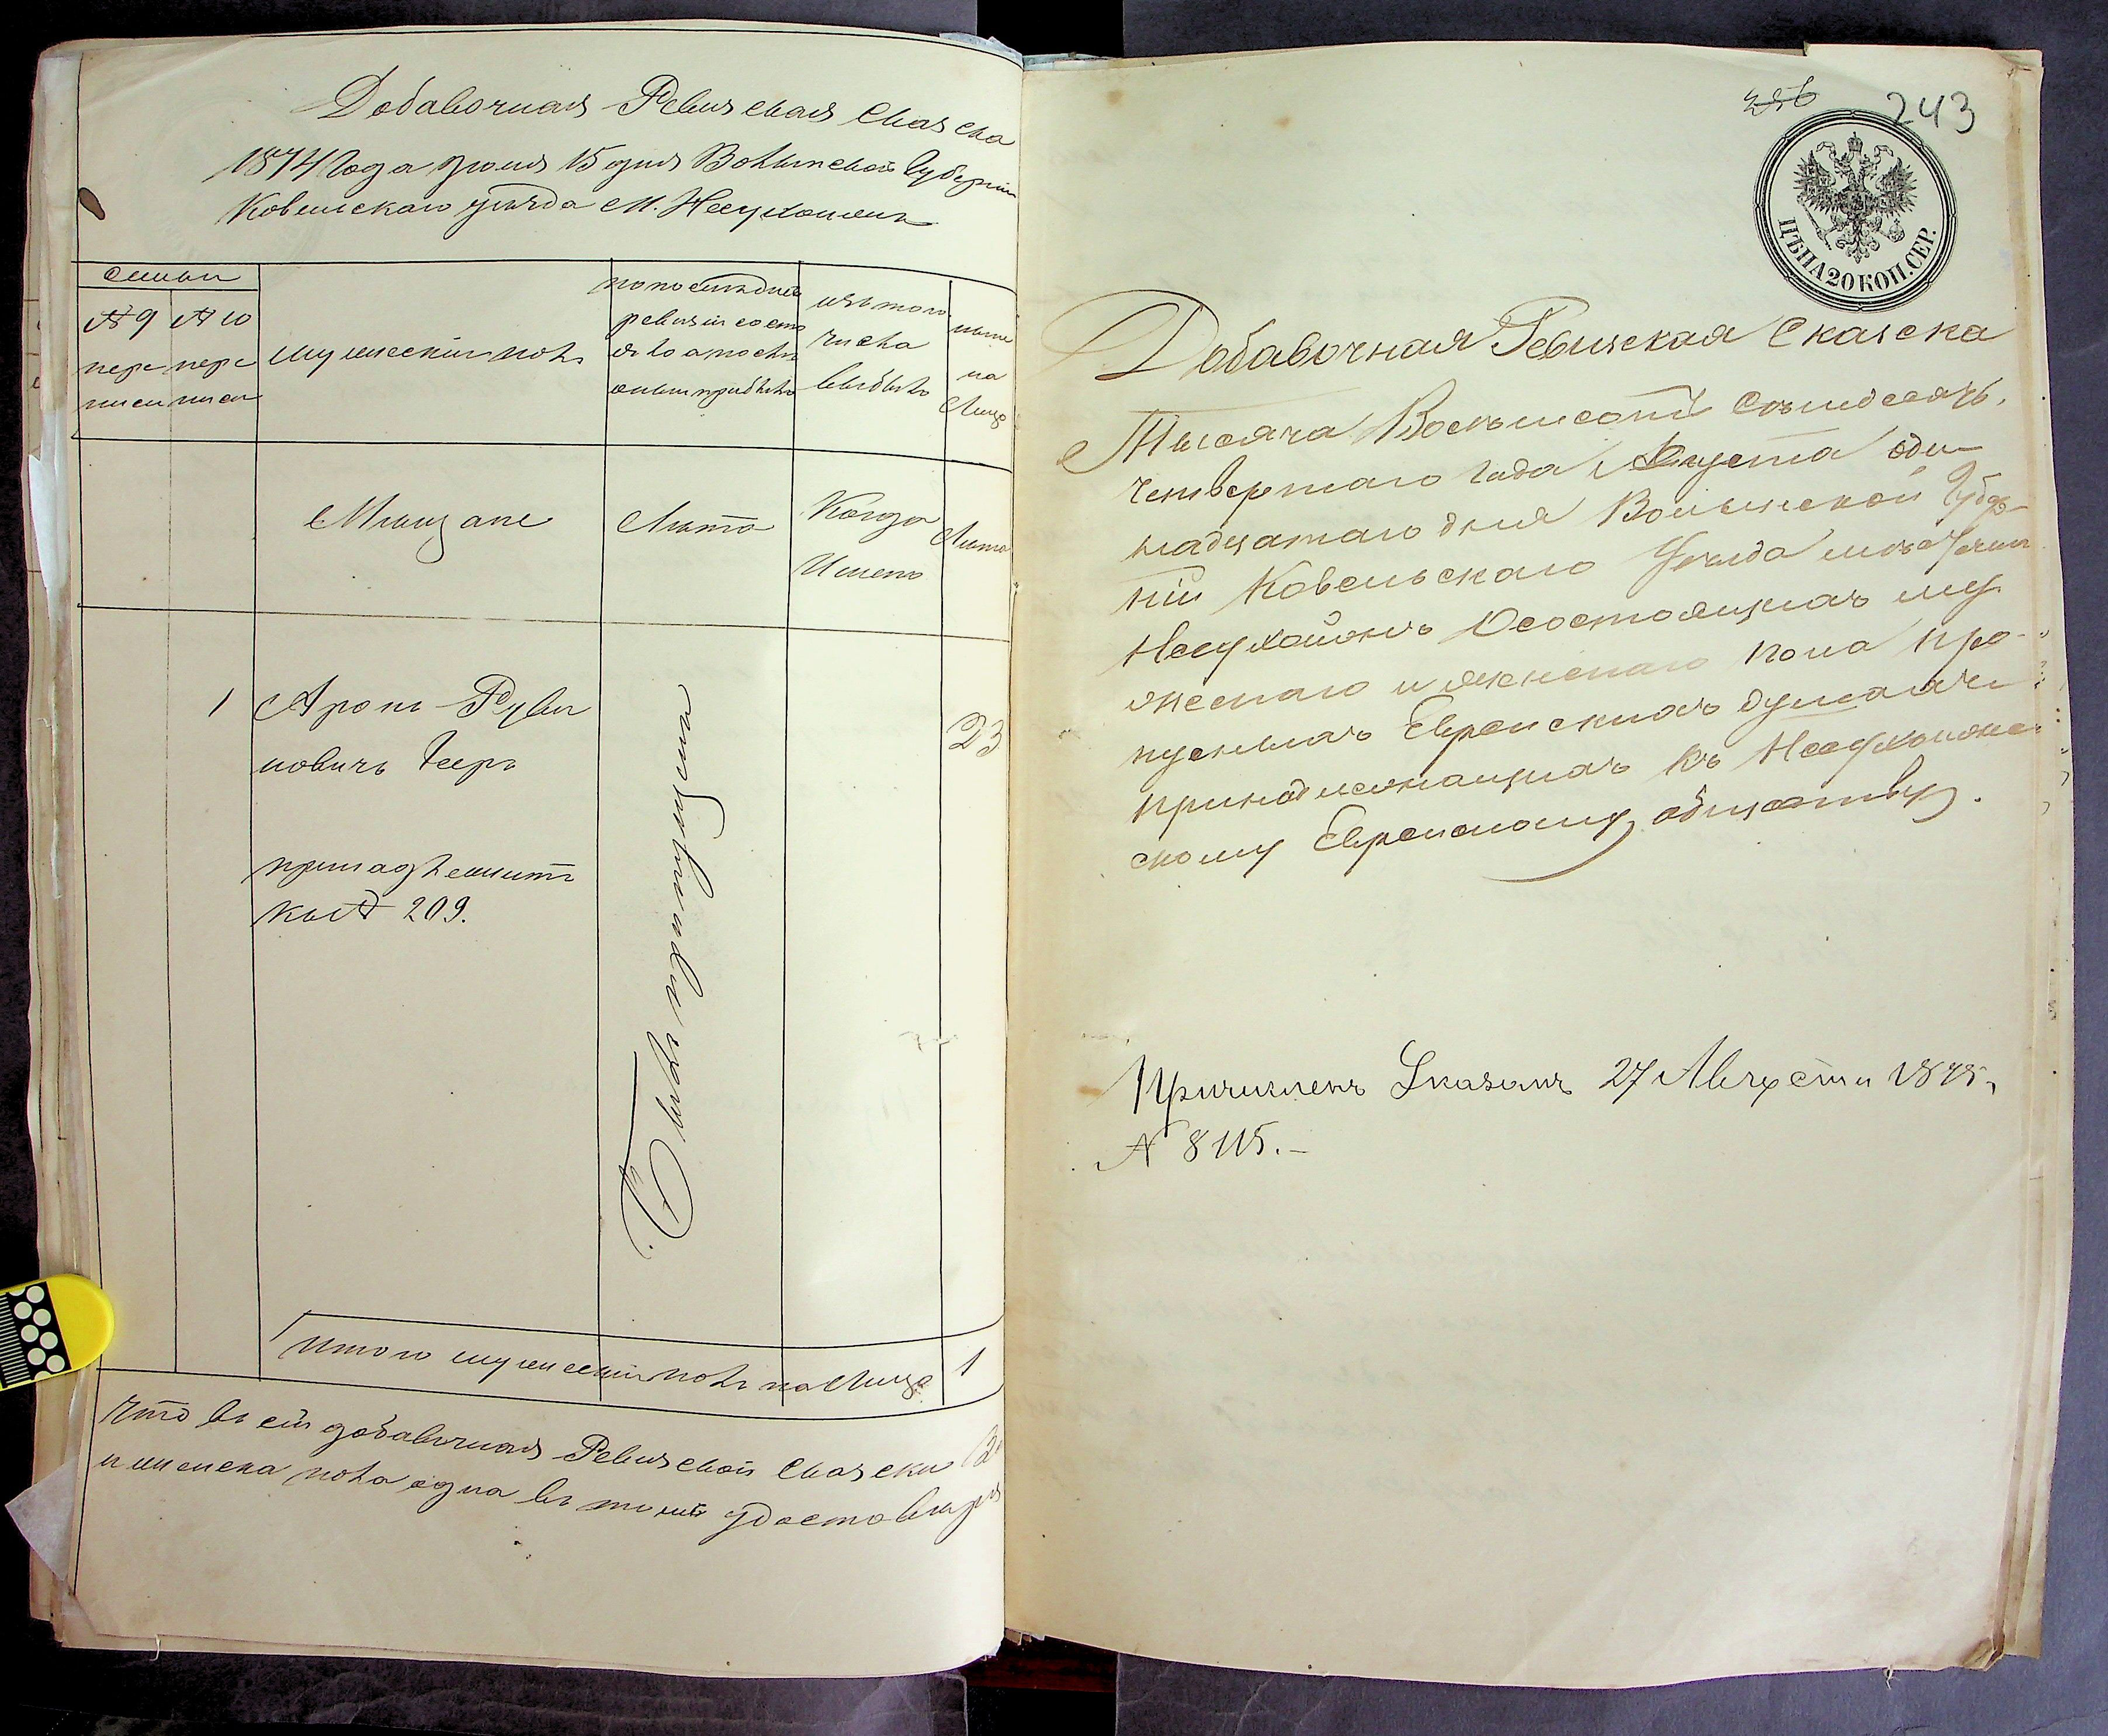 Добавочная Ревизская Сказска
1874 Года Іюня 15 дня Волынской Губерніи
Ковельскаго уѣзда М. Несухоижъ
Семьи
№ 9 № 10
пере пере
писи писи
мужескій полъ
по последней
ревизіи состо
яло а после
оныи прибыло
изъ того
числа
выбыло
ныне
на
Лицо
Мещане
Лѣта
Когда
Имено
Лета
1 Аронъ Руви
новичъ Гееръ
23
принадлежитъ
къ № 209.
Былъ пропущенъ
Итого мужескій полъ на Лицо 1
Что въ сей добавочная Ревизской Сказски
и женска пола одна въ томъ удостоверя
256
243
ЦѢНА 20 КОП. СЕР.
Добавочная Ревизская Сказска
Тысяча Восемьсотъ Семьдесятъ
Четвертаго Года Августа оди-
надцатаго дня Волынской Губер-
ніи Ковельскаго Уѣзда местечка
Несухоижъ О состоящихъ му
жескаго и женскаго пола про-
пусныхъ Еврейскихъ душахъ
принадлежащихъ къ Несухоижс
скому Еврейскому обществу.
Причисленъ Указомъ 27 Августа 1875,
№ 8115.-